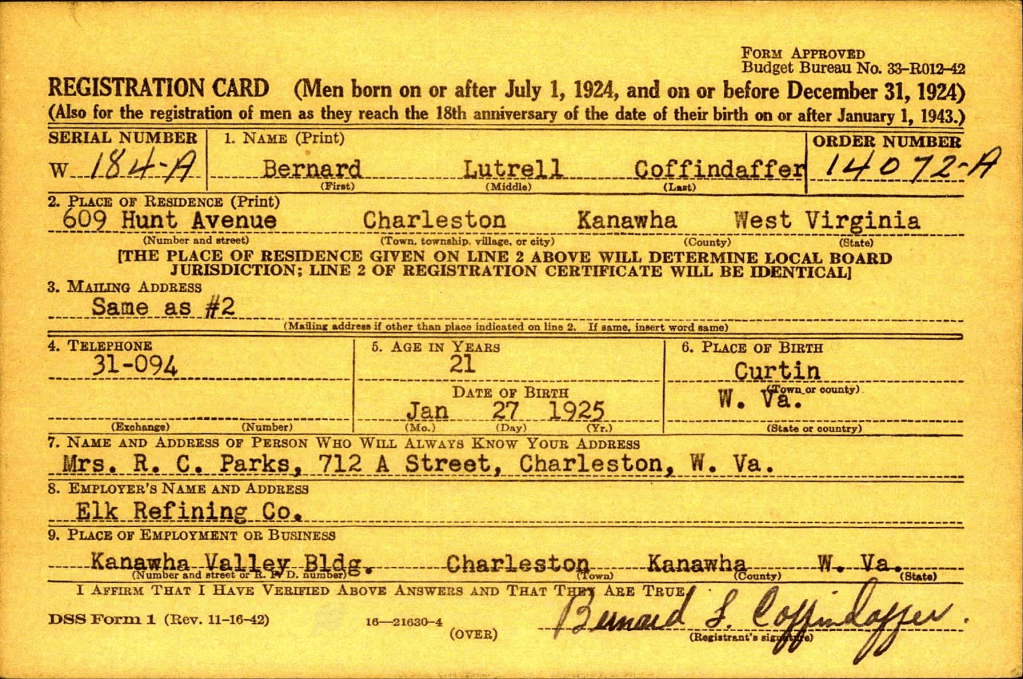 FORM APPROVED
Budget Bureau No. 33–R012–42
REGISTRATION CARD (Men born on or after July 1, 1924, and on or before December 31, 1924)
(Also for the registration of men as they reach the 18th anniversary of the date of their birth on or after January 1, 1943.)
SERIAL NUMBER 1. NAME (Print) ORDER NUMBER
W 184-A Bernard Lutrell Coffindaffer 14072-A
(First) (Middle) (Last)
2. PLACE OF RESIDENCE (Print)
609 Hunt Avenue Charleston Kanawha West Virginia
(Number and street) (Town, township, village, or city) (County) (State)
[THE PLACE OF RESIDENCE GIVEN ON LINE 2 ABOVE WILL DETERMINE LOCAL BOARD
JURISDICTION; LINE 2 OF REGISTRATION CERTIFICATE WILL BE IDENTICAL]
3. MAILING ADDRESS
Same as #2
(Mailing address if other than place indicated on line 2. If same, insert word same)
4. TELEPHONE 5. AGE IN YEARS 6. PLACE OF BIRTH
31-094 21 Curtin
(Town or county)
DATE OF BIRTH W. Va.
Jan 27 1925
(Exchange) (Number) (Mo.) (Day) (Yr.) (State or country)
7. NAME AND ADDRESS OF PERSON WHO WILL ALWAYS KNOW YOUR ADDRESS
Mrs. R. C. Parks, 712 A Street, Charleston, W. Va.
8. EMPLOYER'S NAME AND ADDRESS
Elk Refining Co.
9. PLACE OF EMPLOYMENT OR BUSINESS
Kanawha Valley Bldg. Charleston Kanawha W. Va.
(Number and street or R. F. D. number) (Town) (County) (State)
I AFFIRM THAT I HAVE VERIFIED ABOVE ANSWERS AND THAT THEY ARE TRUE.
DSS Form 1 (Rev. 11-16-42) 16—21630-4 Bernard L. Coffindaffer.
(OVER) (Registrant's signature)